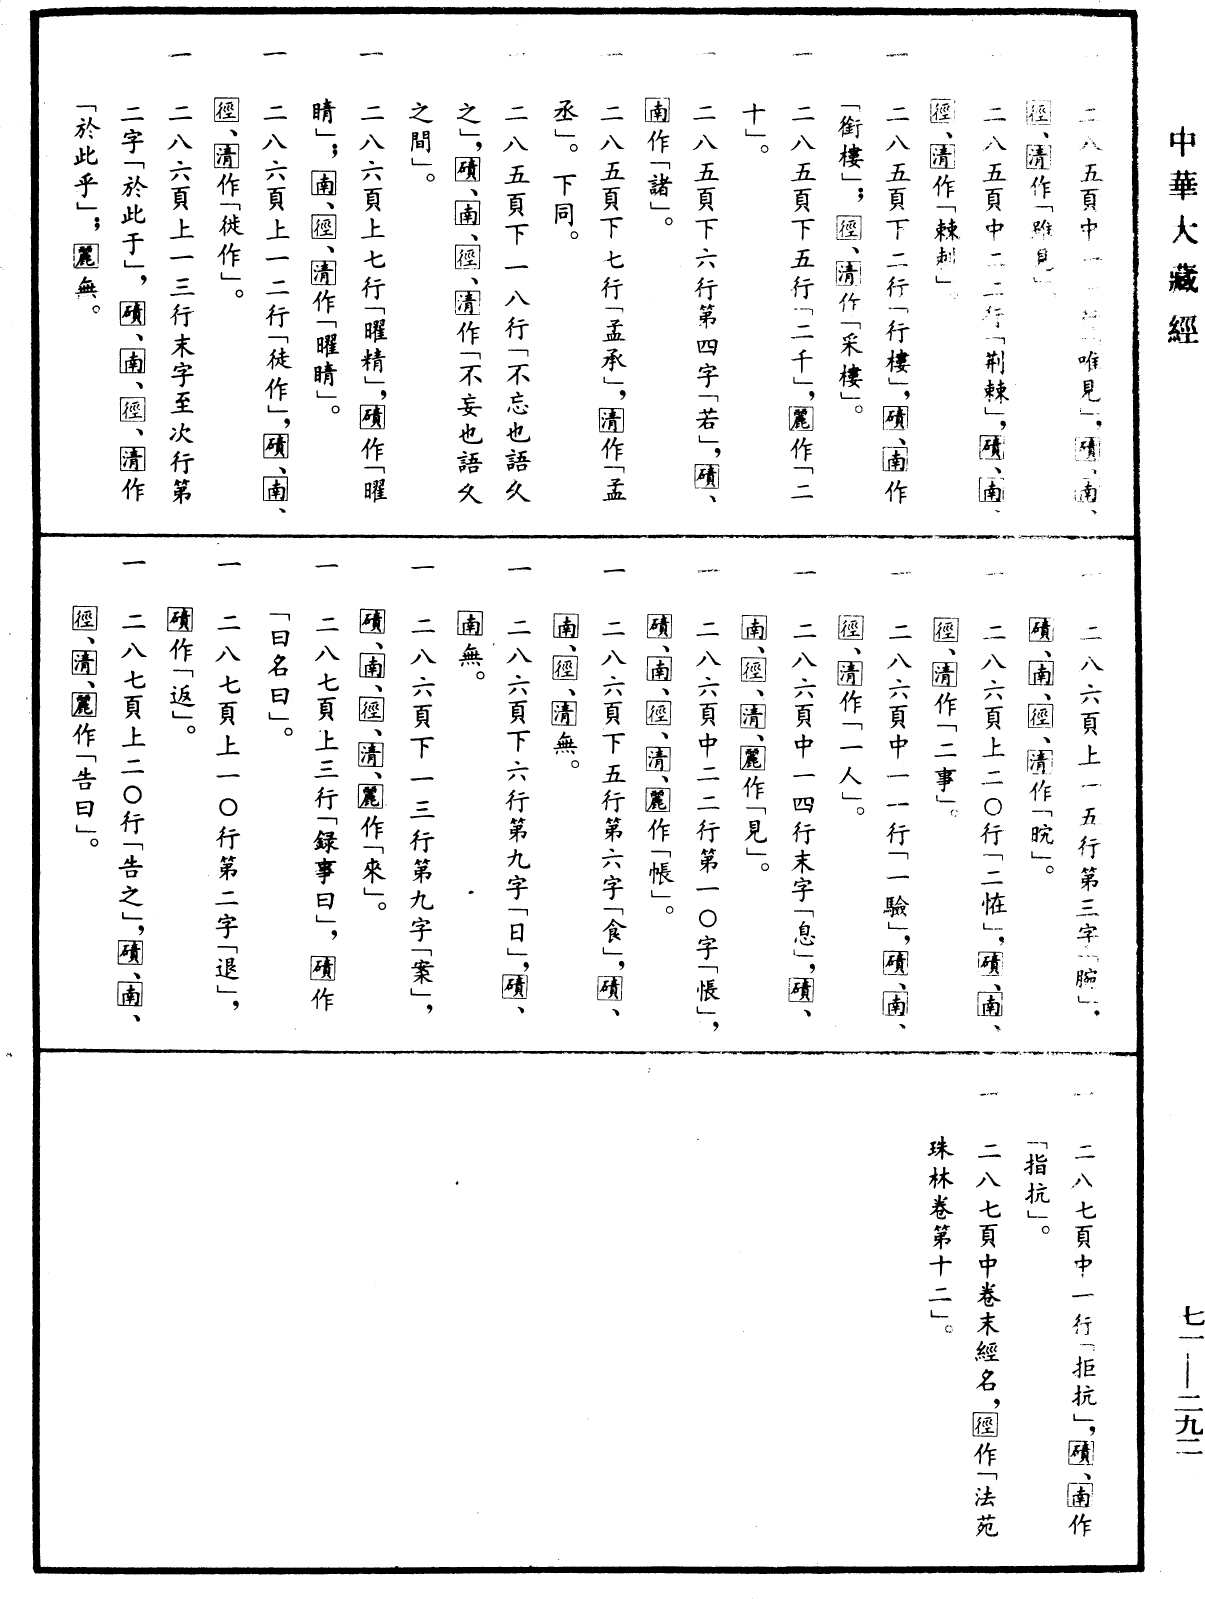 中華大藏經
一 二八五頁中一
唯見」，磧、南、
徑、清作「雖見」。
一 二八五頁中二二行「荆棘」，磧、南、
徑、清作「棘刺」。
一 二八五頁下二行「行樓」，磧、南作
「銜樓」；徑、清作「采樓」。
一 二八五頁下五行「二千」，麗作「二
十」。
一 二八五頁下六行第四字「若」，磧、
南作「諸」。
一 二八五頁下七行「孟承」，清作「孟
丞」。下同。
一 二八五頁下一八行「不忘也語久
之」，磧、南、徑、清作「不妄也語久
之間」。
一 二八六頁上七行「曜精」，磧作「曜
睛」；南、徑、清作「曜睛」。
一 二八六頁上一二行「徒作」，磧、南、
徑、清作「徙作」。
一 二八六頁上一三行末字至次行第
二字「於此于」，磧、南、徑、清作
「於此乎」；麗無。
一 二八六頁上一五行第三字「腕」，
磧、南、徑、清作「睕」。
一 二八六頁上二〇行「二恠」，磧、南、
徑、清作「二事」。
一 二八六頁中一一行「一驗」，磧、南、
徑、清作「一人」。
一 二八六頁中一四行末字「息」，磧、
南、徑、清、麗作「見」。
一 二八六頁中二二行第一〇字「悵」，
磧、南、徑、清、麗作「帳」。
一 二八六頁下五行第六字「食」，磧、
南、徑、清無。
一 二八六頁下六行第九字「日」，磧、
南無。
一 二八六頁下一三行第九字「案」，
磧、南、徑、清、麗作「來」。
一 二八七頁上三行「録事曰」，磧作
「曰名曰」。
一 二八七頁上一〇行第二字「退」，
磧作「返」。
一 二八七頁上二〇行「告之」，磧、南、
徑、清、麗作「告曰」。
一 二八七頁中一行「拒抗」，磧、南作
「指抗」。
一 二八七頁中卷末經名，徑作「法苑
珠林卷第十二」。
七一—二九二